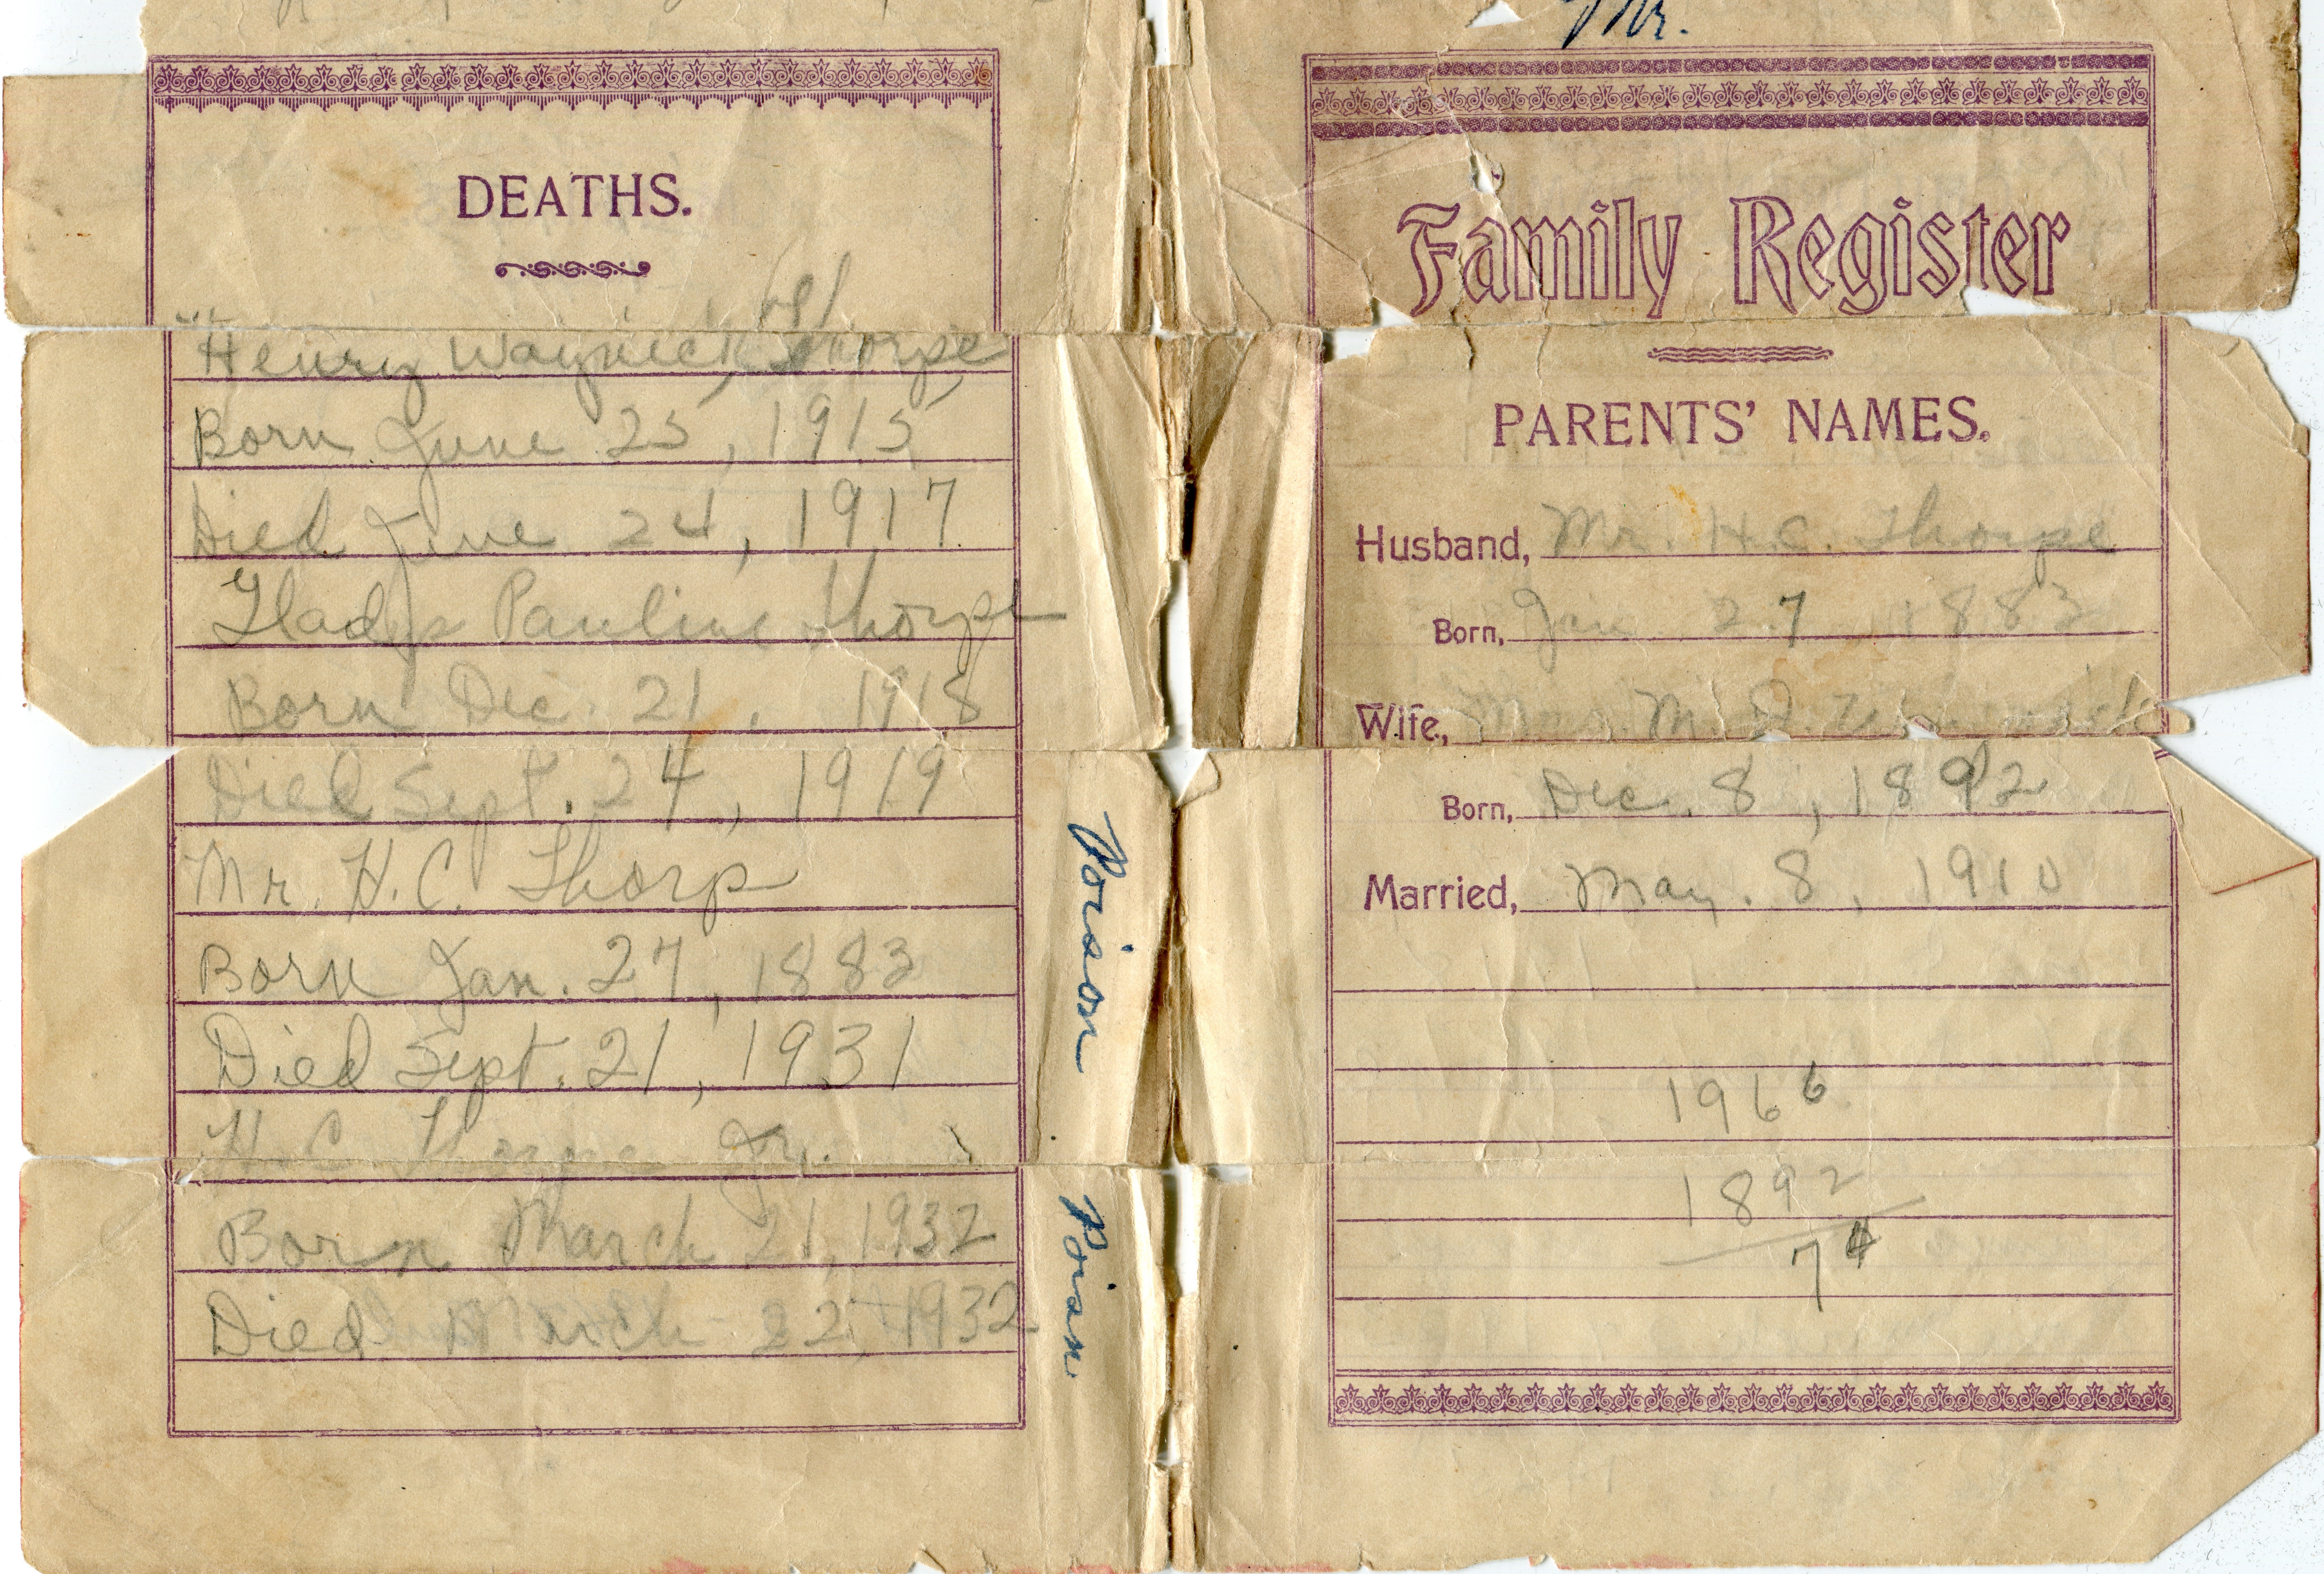 DEATHS.
Henry Waynick Thorpe
Born June 25, 1915
Died June 24, 1917
Gladys Pauline Thorpe
Born Dec. 21, 1918
Died Sept. 24, 1919
Mr. H.C. Thorp
Born Jan. 27, 1883
Died Sept. 21, 1931
H.C. Thorpe Jr.
Born March 21, 1932
Died March 22, 1932
Poison
Poison
Mr.
Family Register
PARENTS' NAMES.
Husband, Mr. H.C. Thorpe
Born, Jan 27 1883
Wife, Mrs. M.
Born, Dec. 8, 1892
Married, May. 8, 1910
1966
1892
74